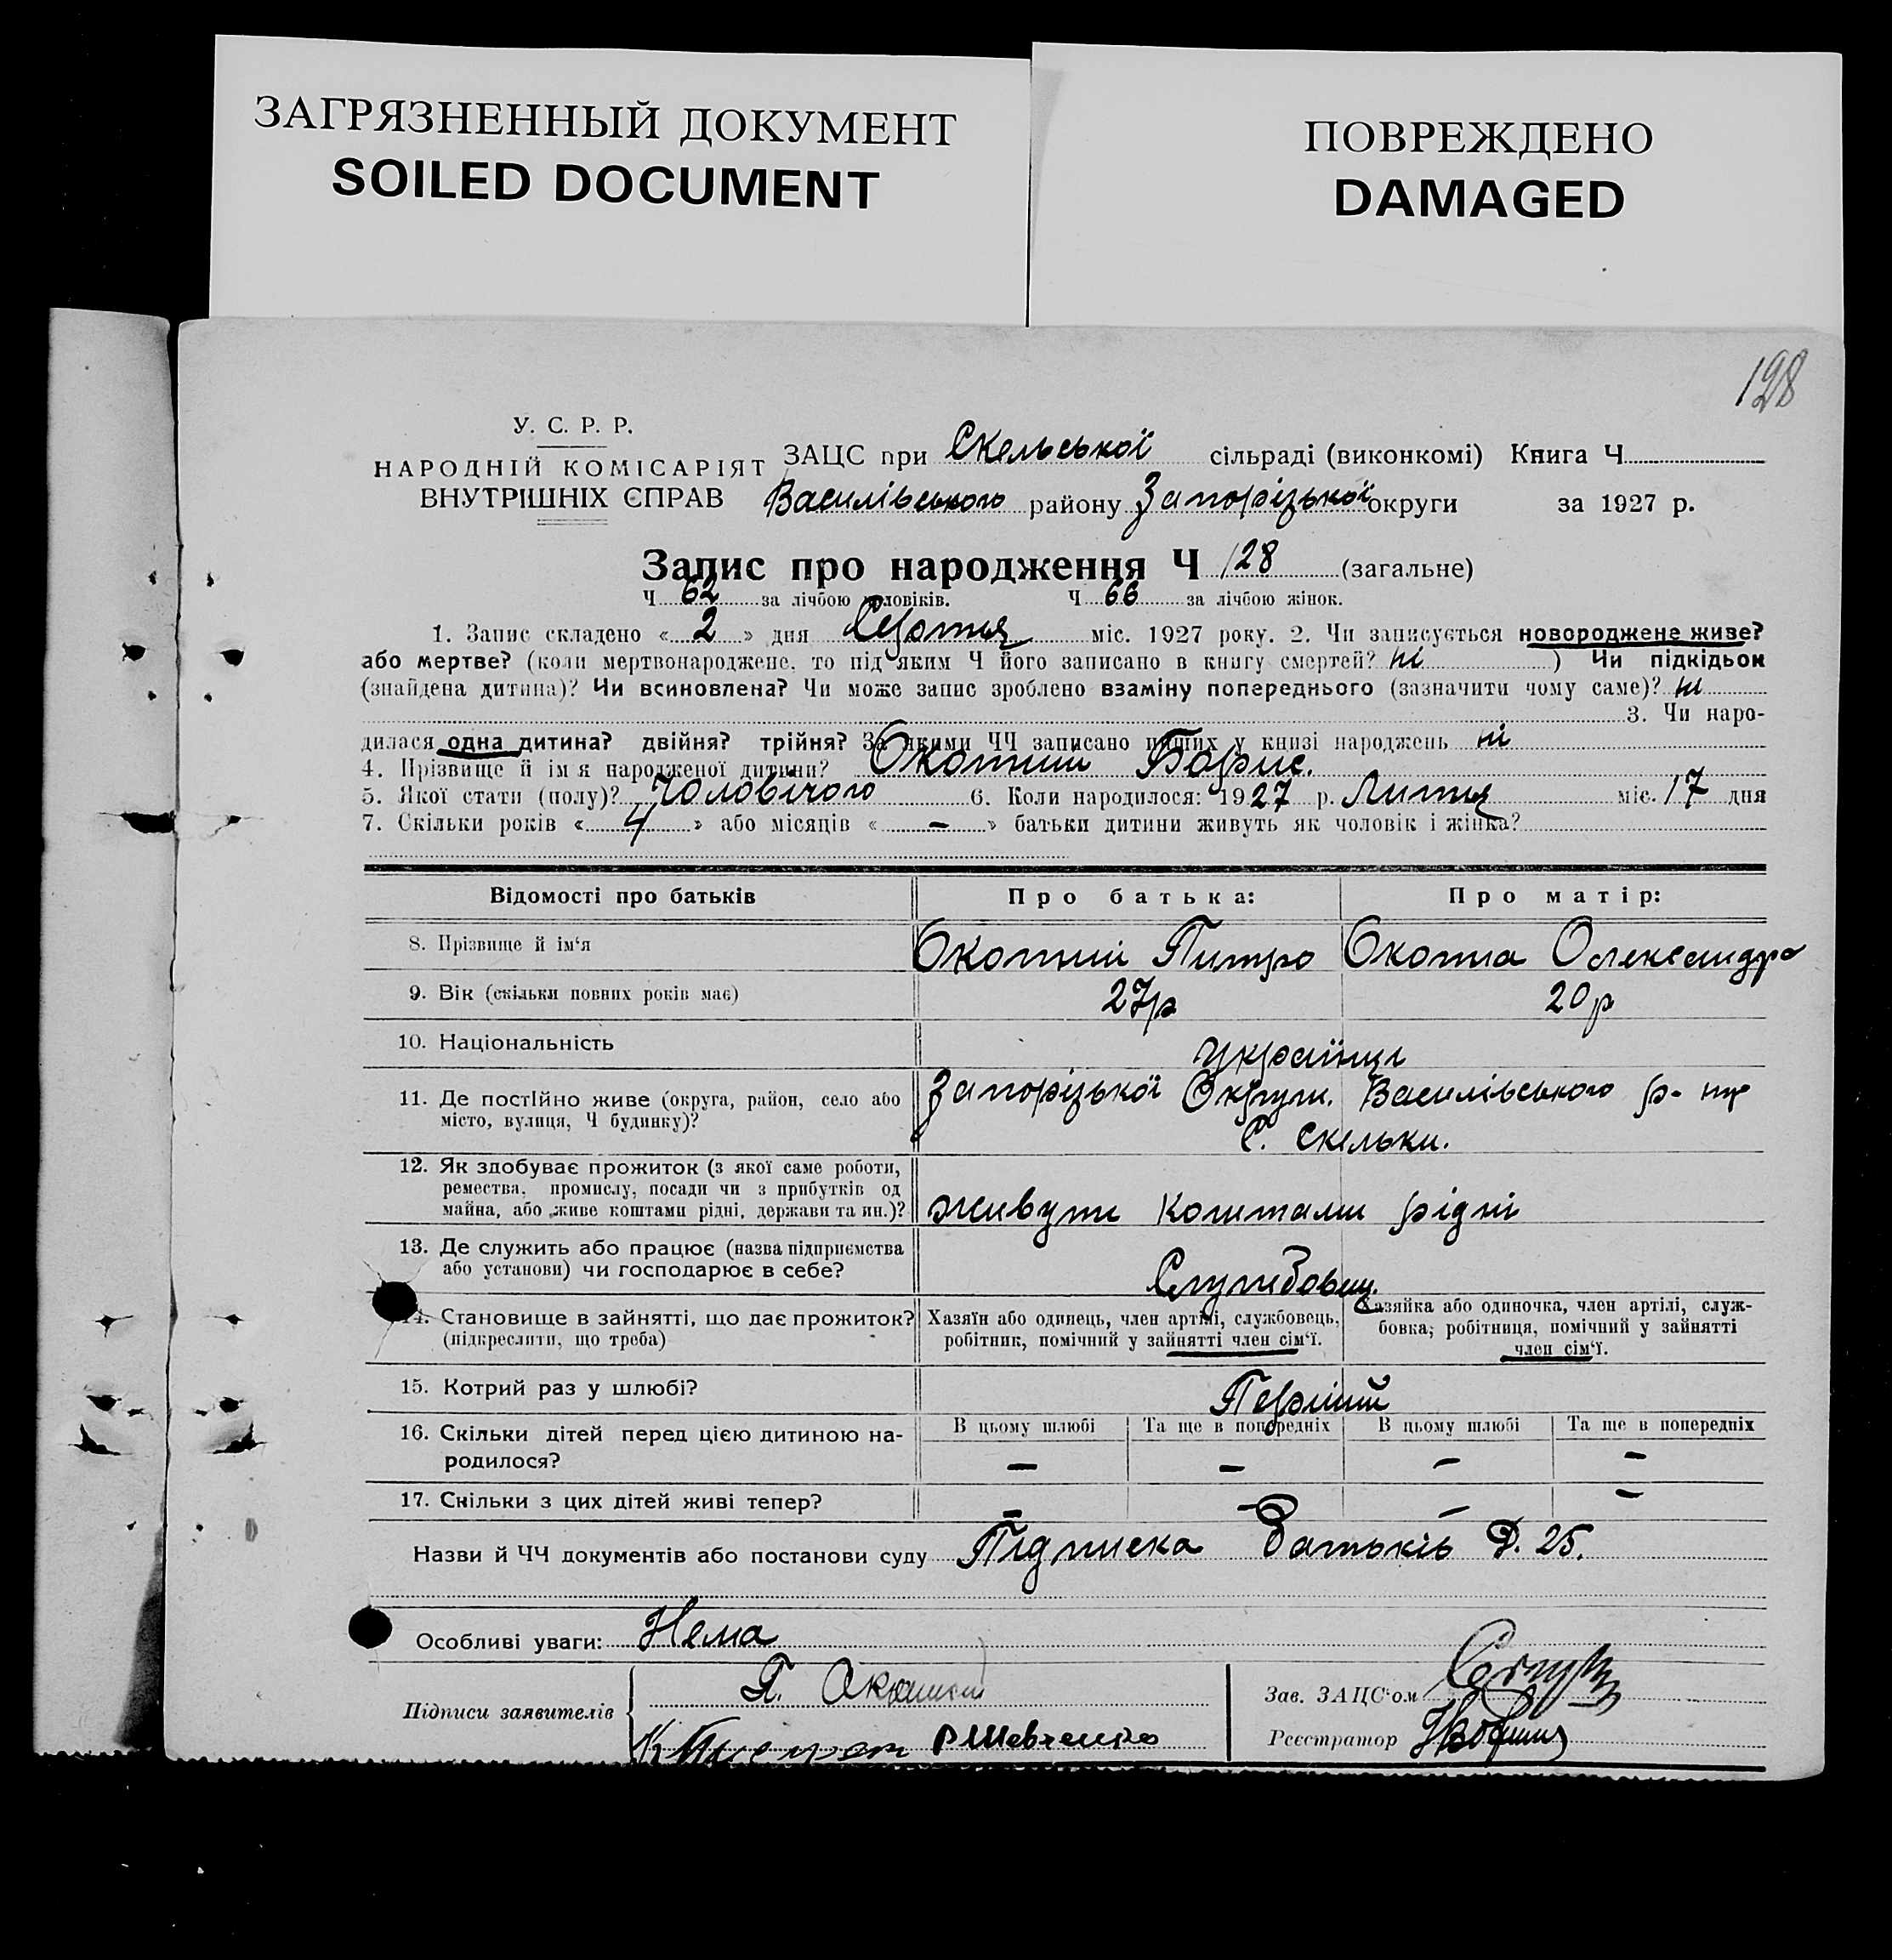 ЗАГРЯЗНЕННЫЙ ДОКУМЕНТ
SOILED DOCUMENT
ПОВРЕЖДЕНО
DAMAGED
128
У. С. Р. Р.
НАРОДНІЙ КОМІСАРІЯТ
ВНУТРІШНІХ СПРАВ
ЗАЦС при Скельської сільраді (виконкомі) Книга Ч
Василівського району Запорізької округи за 1927 р.
Запис про народження Ч 128 (загальне)
Ч 62 за лічбою чоловіків. Ч 66 за лічбою жінок.
1. Запис складено « 2 » дня Серпня міс. 1927 року. 2. Чи записується новороджене живе?
або мертве? (коли мертвонароджене, то під яким Ч його записано в книгу смертей? ні ) Чи підкідьок
(знайдена дитина)? Чи всиновлена? Чи може запис зроблено взаміну попереднього (зазначити чому саме)? ні
3. Чи наро-
дилася одна дитина? двійня? трійня? За якими ЧЧ записано инших у книзі народжень ні
4. Прізвище й ім'я народженої дитини? Борис.
5. Якої стати (полу)? Чоловічого 6. Коли народилося: 1927 р. Липня міс. 17 дня
7. Скільки років « 4 » або місяців « — » батьки дитини живуть як чоловік і жінка?
Відомості про батьків Про батька: Про матір:
8. Прізвище й ім'я Питро Олександра
9. Вік (скільки повних років має) 27р 20р
10. Національність Українці
11. Де постійно живе (округа, район, село або Запорізької Округи. Василівського р-ну
місто, вулиця, Ч будинку)? С. Скельки.
12. Як здобуває прожиток (з якої саме роботи,
ремества, промислу, посади чи з прибутків од
майна, або живе коштами рідні, держави та ин.)? живуть коштами рідні
13. Де служить або працює (назва підприємства
або установи) чи господарює в себе? Службовец.
14. Становище в зайнятті, що дає прожиток? Хазяїн або одинець, член артілі, службовець, Хазяйка або одиночка, член артілі, служ-
(підкреслити, що треба) робітник, помічний у зайнятті член сім'ї. бовка; робітниця, помічний у зайнятті
член сім'ї.
15. Котрий раз у шлюбі? Перший
16. Скільки дітей перед цією дитиною на- В цьому шлюбі Та ще в попередніх В цьому шлюбі Та ще в попередніх
родилося? — — — —
17. Скільки з цих дітей живі тепер? — — — —
Назви й ЧЧ документів або постанови суду Підписка батьків Д. 25.
Особливі уваги: Нема
Підписи заявителів П.
Р Шевченко
Зав. ЗАЦС'ом
Реєстратор